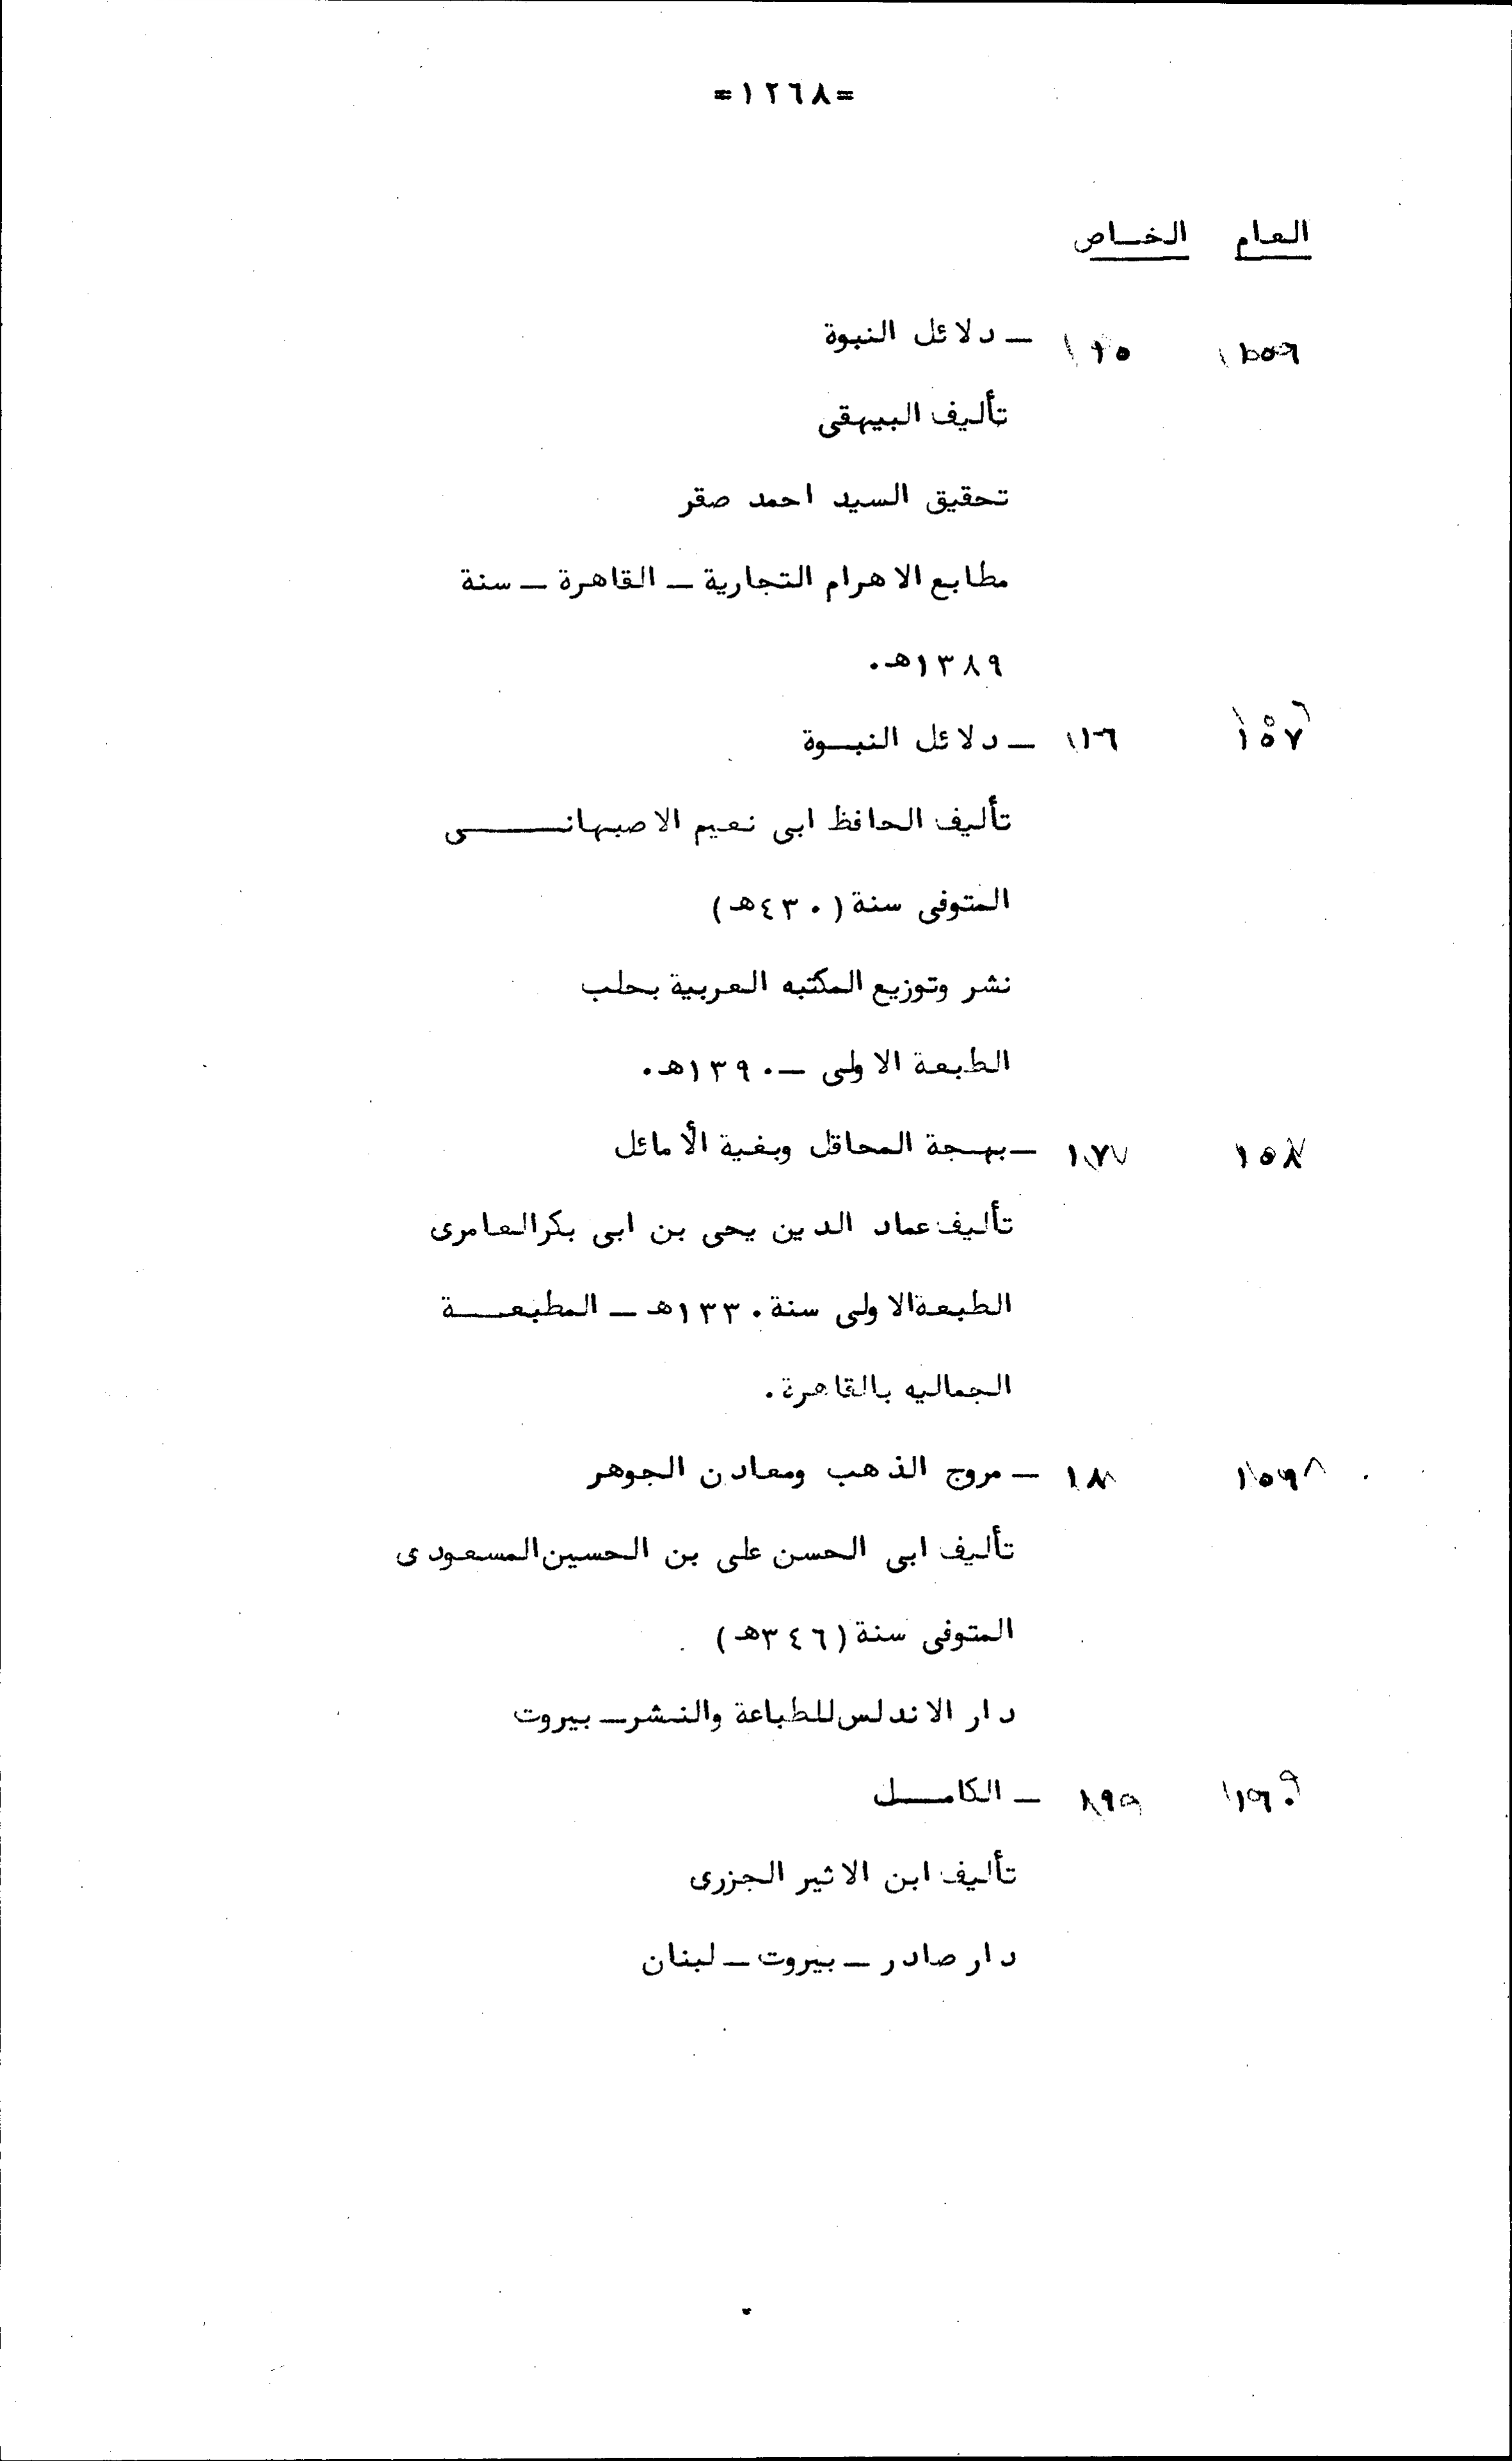 =١٢٦٨=
العام الخــاص
ـ دلائل النبوة
تأليف البيهقى
تحقيق السيد احمد صقر
مطابع الاهرام التجارية ـ القاهرة ـ سنة
١٣٨٩هـ.
١٥٧ ١٦ ـ دلائل النبــوة
تأليف الحافظ ابى نعيم الاصبهانــــــى
المتوفى سنة (٤٣٠هـ)
نشر وتوزيع المكتبه العربية بحلب
الطبعة الاولى ـ ١٣٩٠هـ.
١٥٨ ١٧ ـ بهـجة المحاقل وبغية الأمائل
تأليف عماد الدين يحى بن ابى بكرالعامرى
الطبعةالاولى سنة ١٣٣٠هـ ـ المطبعــــة
الجماليه بالقاهرة.
١٥٩ ١٨ ـ مروج الذهب ومعادن الجوهر
تأليف ابى الحسن على بن الحسين المسعودى
المتوفى سنة (٣٤٦هـ)
دار الاندلس للطباعة والنشرـ بيروت
ـ الكامــــل
تأليف ابن الاثير الجزرى
دار صادر ـ بيروت ـ لبنان